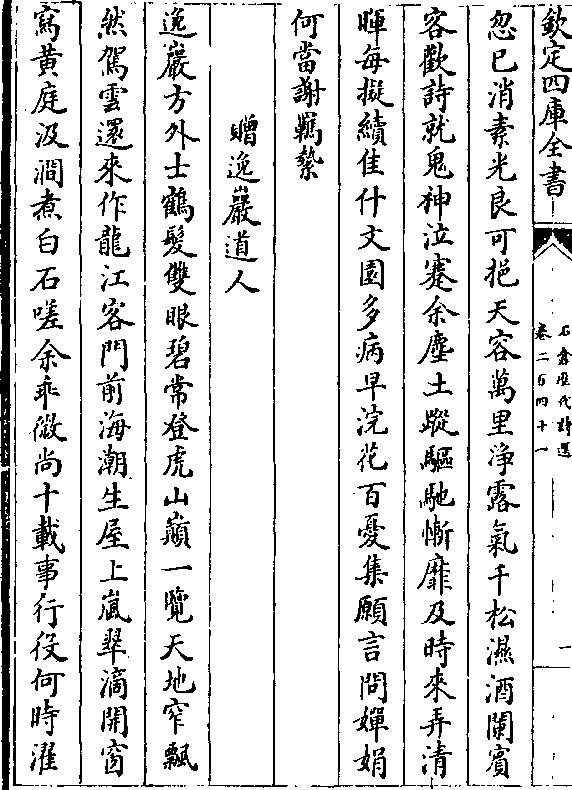 欽定四庫全書
石倉歷代詩選
卷二百四十一
一
忽已消素光良可挹天容萬里淨露氣千松濕酒闌賓
客歡詩就鬼神泣蹇余塵土蹤驅馳慚靡及時來弄清
暉每擬續佳什文園多病早浣花百憂集願言問嬋娟
何當謝羈縶
贈逸巖道人
逸巖方外士鶴髮雙眼碧常登虎山巔一覽天地窄飄
然駕雲還來作龍江客門前海潮生屋上嵐翠滴開窗
寫黃庭汲澗煮白石嗟余乖微尚十載事行役何時濯